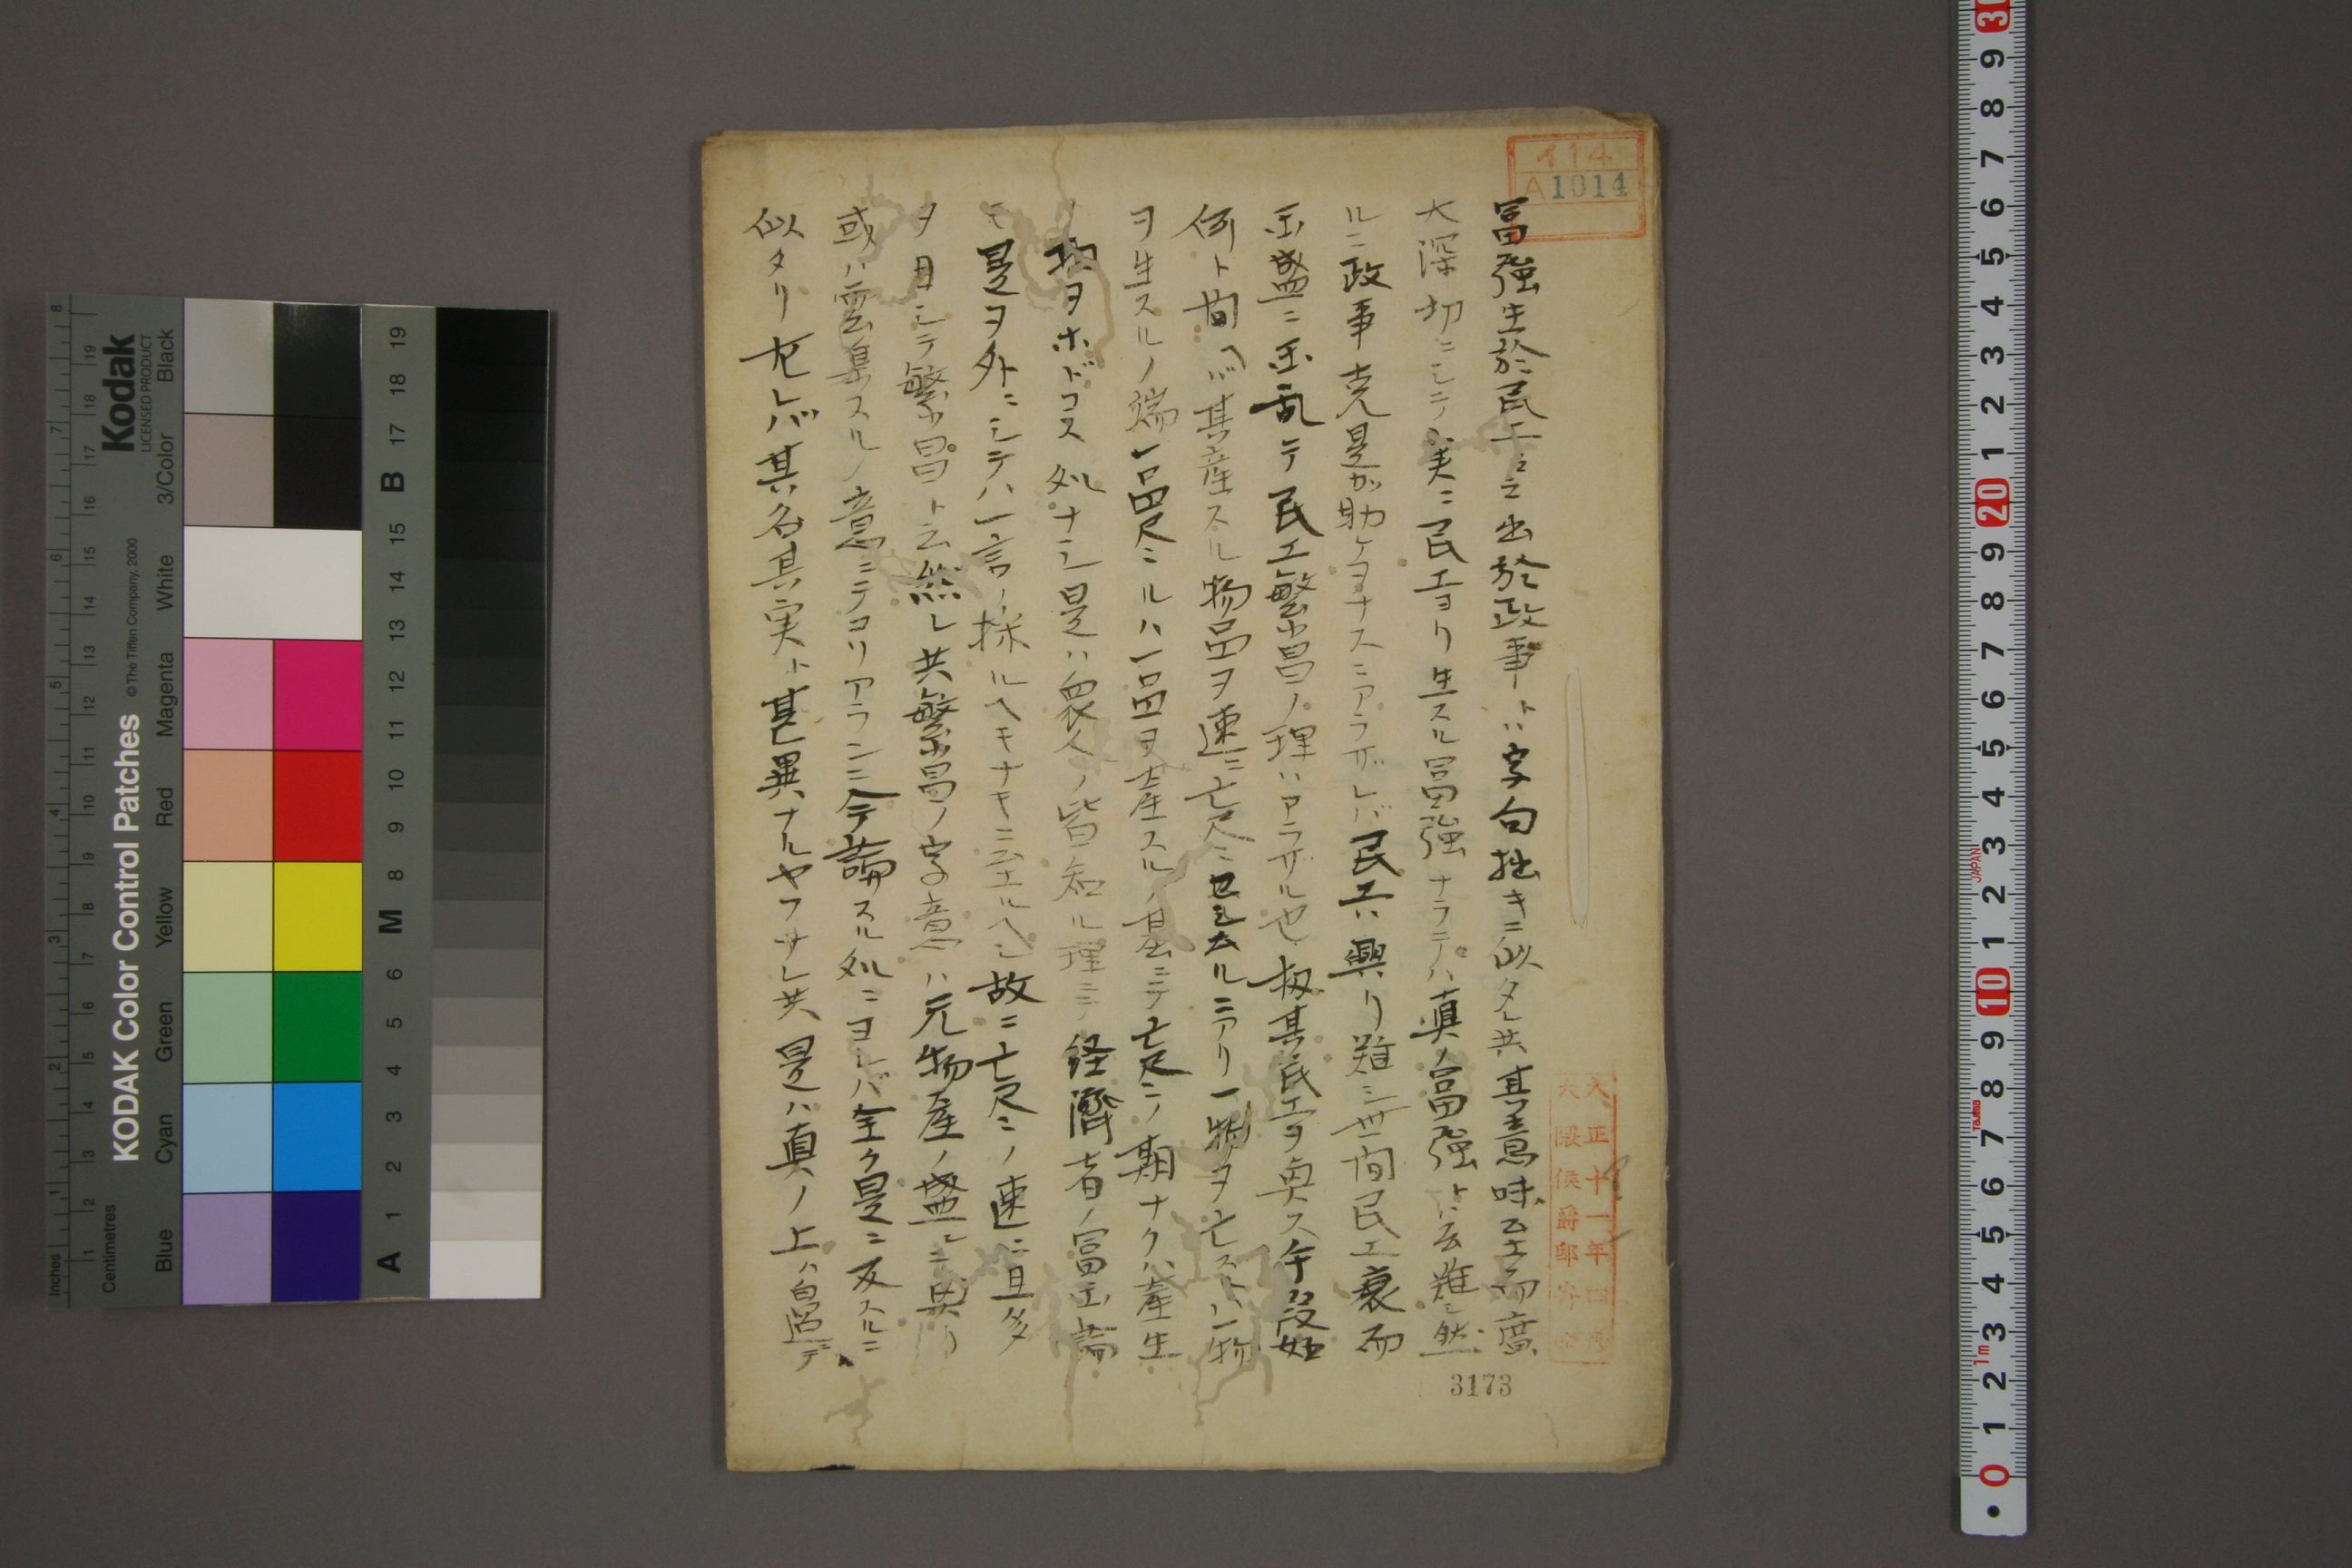 富強生於民工之出於政事トハ字句拙キニ似タレ共其意味至而廣
大深切ニシテ実ニ民工ヨリ生スル冨強ナラテハ真ノ冨強トハ云難シ然
ルニ政事克是カ助ケヲナスニアラザレバ民工ハ興リ難シ世間民工衰而
国盛ニ国乱テ民工繁昌ノ理ハアラザル也扨其民工ヲ興ス手段如
何ト問ヘバ其産スル物品ヲ速ニ亡尽セシムルニアリ一物ヲ亡スハ一物
ヲ生スルノ端一品尽ルハ一品ヲ産スルノ基ニテ亡尽ノ期ナクハ産生
ノ物ヲホドコス処ナシ是ハ衆人ノ皆知ル理ニテ経濟者ノ富国論
モ是ヲ外ニシテハ一言ノ採ルヘキナキニ至ルヘシ故ニ亡尽ノ速ニ且多
ヲ目シテ繁昌ト云然レ共繁昌ノ字意ハ元物産ノ盛ルニ
或ハ雲集スルノ意ニテコソアラン今論スル処ニヨレバ全ク是ニ反スルニ
似タリ左レバ其名其実ト甚異ナルヤフナレ共是ハ真ノ上ハ
イ14
A1014
大正十一年四月
大隈侯爵邸寄
3173
KODAK Color Control Patches
© The Tiffen Company, 2000
Kodak
LICENSED PRODUCT
Inches
Centimetres
Blue Cyan Green Yellow Red Magenta White 3/Color Black
A 1 2 3 4 5 6 M 8 9 10 11 12 13 14 15 B 17 18 19
JAPAN
TaJima
1m